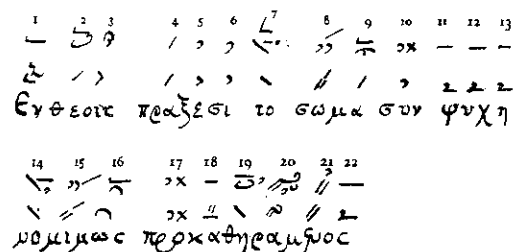 1 2 3 4 5 6 7 8 9 10 11 12 13
Ενθεοις πραξεσι το σωμα συν ψυχη
14 15 16 17 18 19 20 21 22
νομιμως προκαθηραμενος